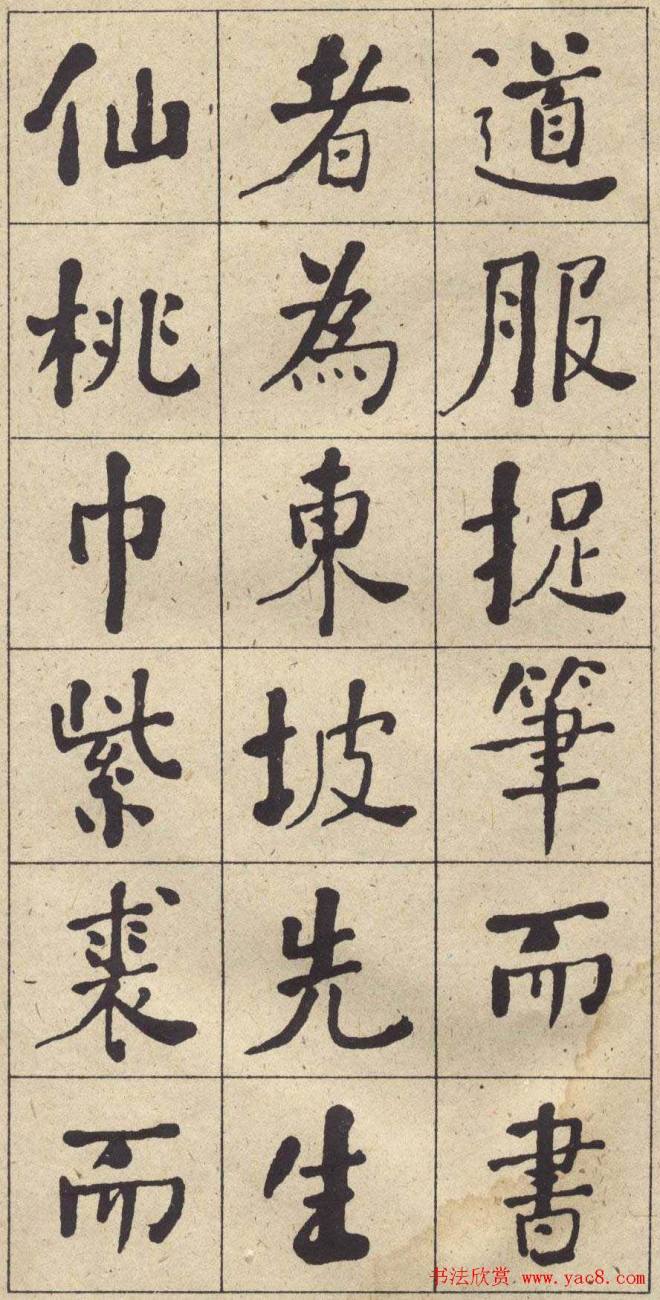 道服捉筆而書
者為東坡先生
仙桃巾紫裘而
书法欣赏 www.yac8.com